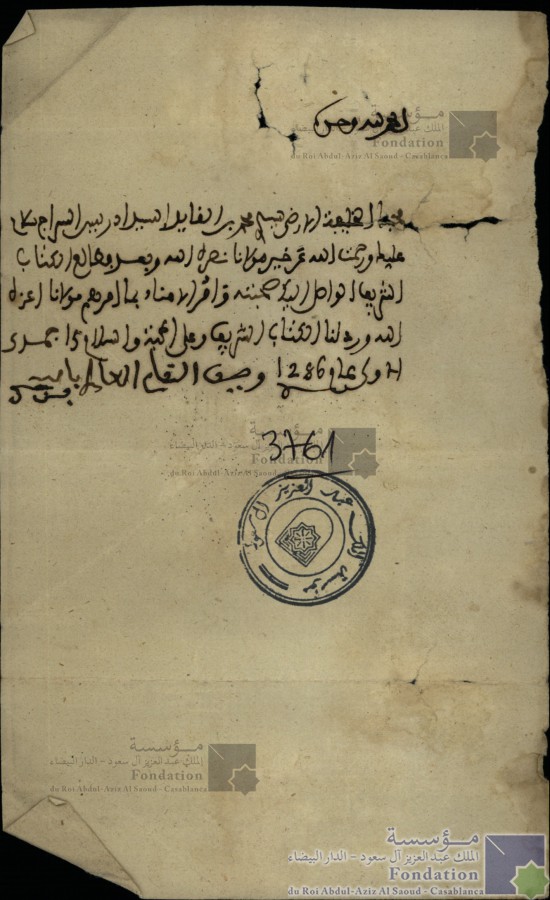 الحمد لله وحده
محبنا الخليفة الارضى سيدي محمد بن القايد السيد ادريس السراج سلام
عليك ورحمت الله عن خير مولانا نصره الله وبعد الكتاب
الشريف الواصل اليك صحبته الامناء بما امرهم مولانا اعزه
الله ورد لنا الكتاب الشريف وعلى المحبة والسلام في جمدى
الاولى عام 1286 وصيف المقام العالي بالله
3761
مؤسسة الملك عبد العزيز آل سعود
مؤسسة
الملك عبد العزيز آل سعود - الدار البيضاء
Fondation
du Roi Abdul-Aziz Al Saoud - Casablanca
مؤسسة
الملك عبد العزيز آل سعود - الدار البيضاء
Fondation
du Roi Abdul-Aziz Al Saoud - Casablanca
مؤسسة
الملك عبد العزيز آل سعود - الدار البيضاء
Fondation
du Roi Abdul-Aziz Al Saoud - Casablanca
مؤسسة
الملك عبد العزيز آل سعود - الدار البيضاء
Fondation
du Roi Abdul-Aziz Al Saoud - Casablanca